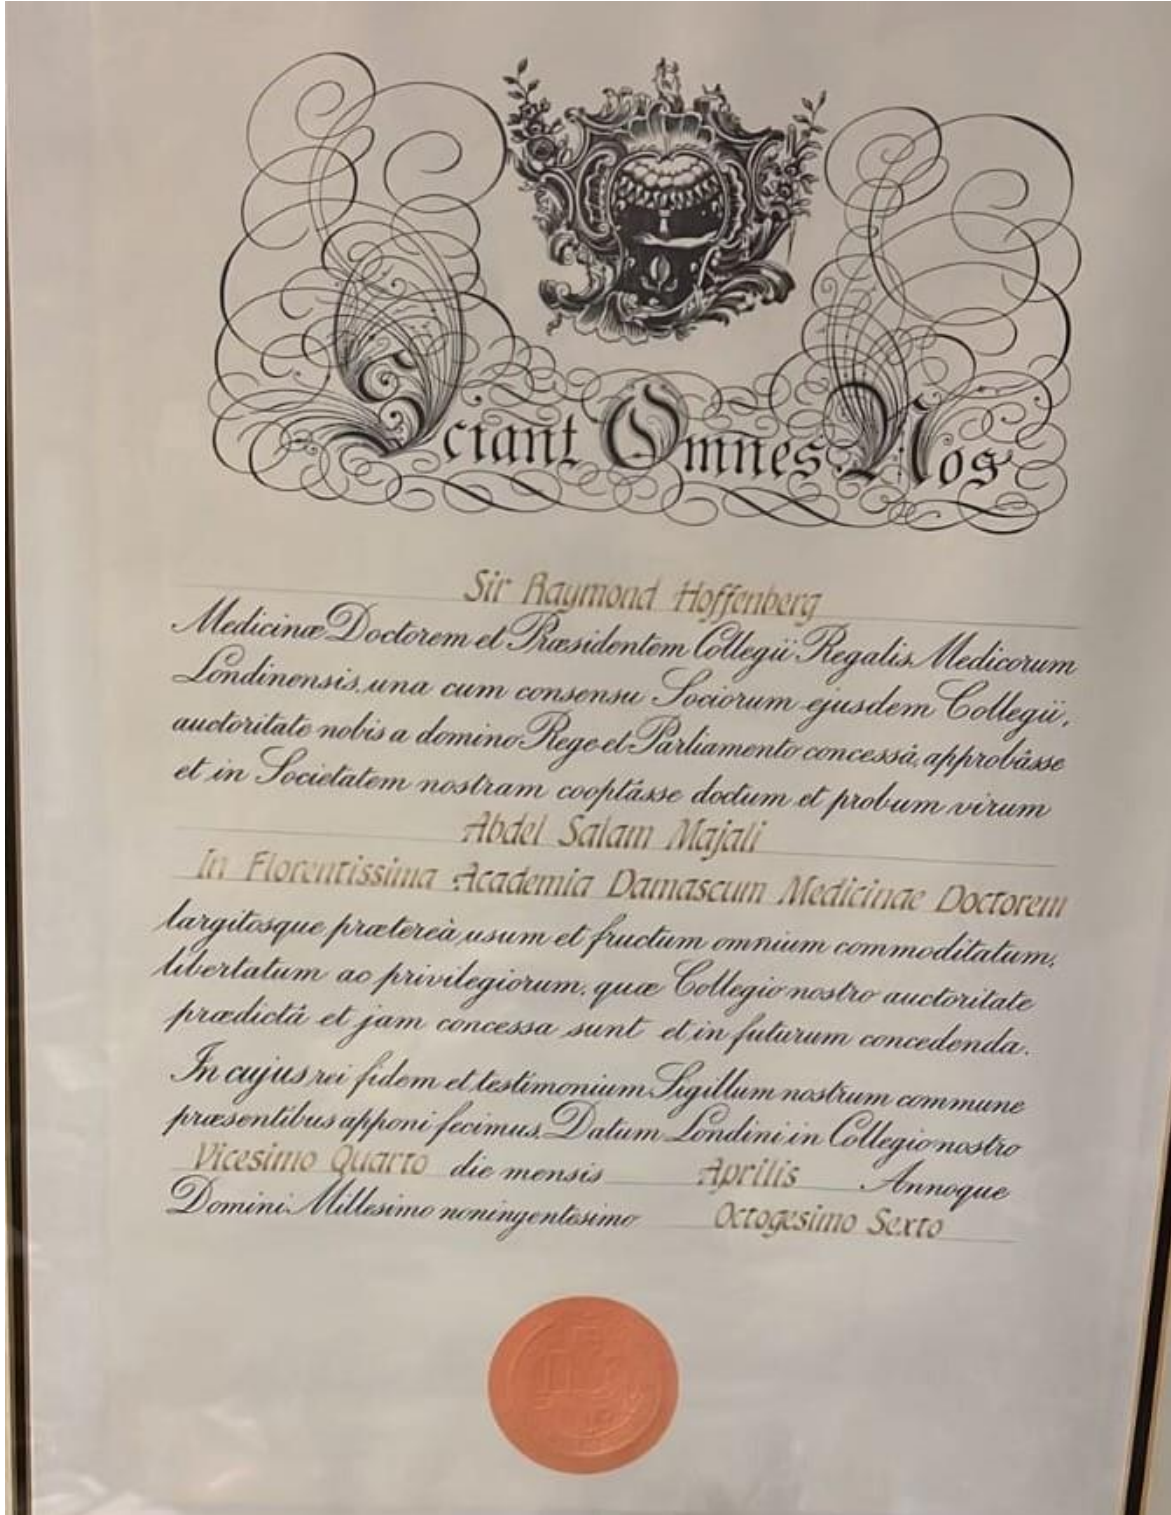 Sciant Omnes Nos
Sir Raymond Hoffenberg
Medicinæ Doctorem et Præsidentem Collegii Regalis Medicorum
Londinensis, una cum consensu Sociorum ejusdem Collegii,
auctoritate nobis a domino Rege et Parliamento concessâ, approbâsse
et in Societatem nostram cooptâsse doctum et probum virum
Abdel Salam Majali
In Florentissima Academia Damascum Medicinae Doctorem
largitosque prætereà usum et fructum omnium commoditatum,
libertatum ac privilegiorum, quæ Collegio nostro auctoritate
prædictâ et jam concessa sunt et in futurum concedenda.
In cujus rei fidem et testimonium Sigillum nostrum commune
præsentibus apponi fecimus. Datum Londini in Collegio nostro
Vicesimo Quarto die mensis Aprilis Annoque
Domini Millesimo noningentesimo Octogesimo Sexto